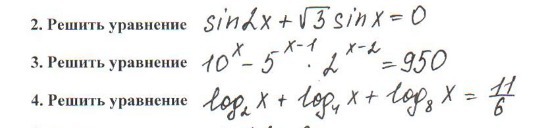 2. Решить уравнение sin2x + √3 sinx = 0
3. Решить уравнение 10^x - 5^(x-1) · 2^(x-2) = 950
4. Решить уравнение log₂ x + log₄ x + log₈ x = 11/6